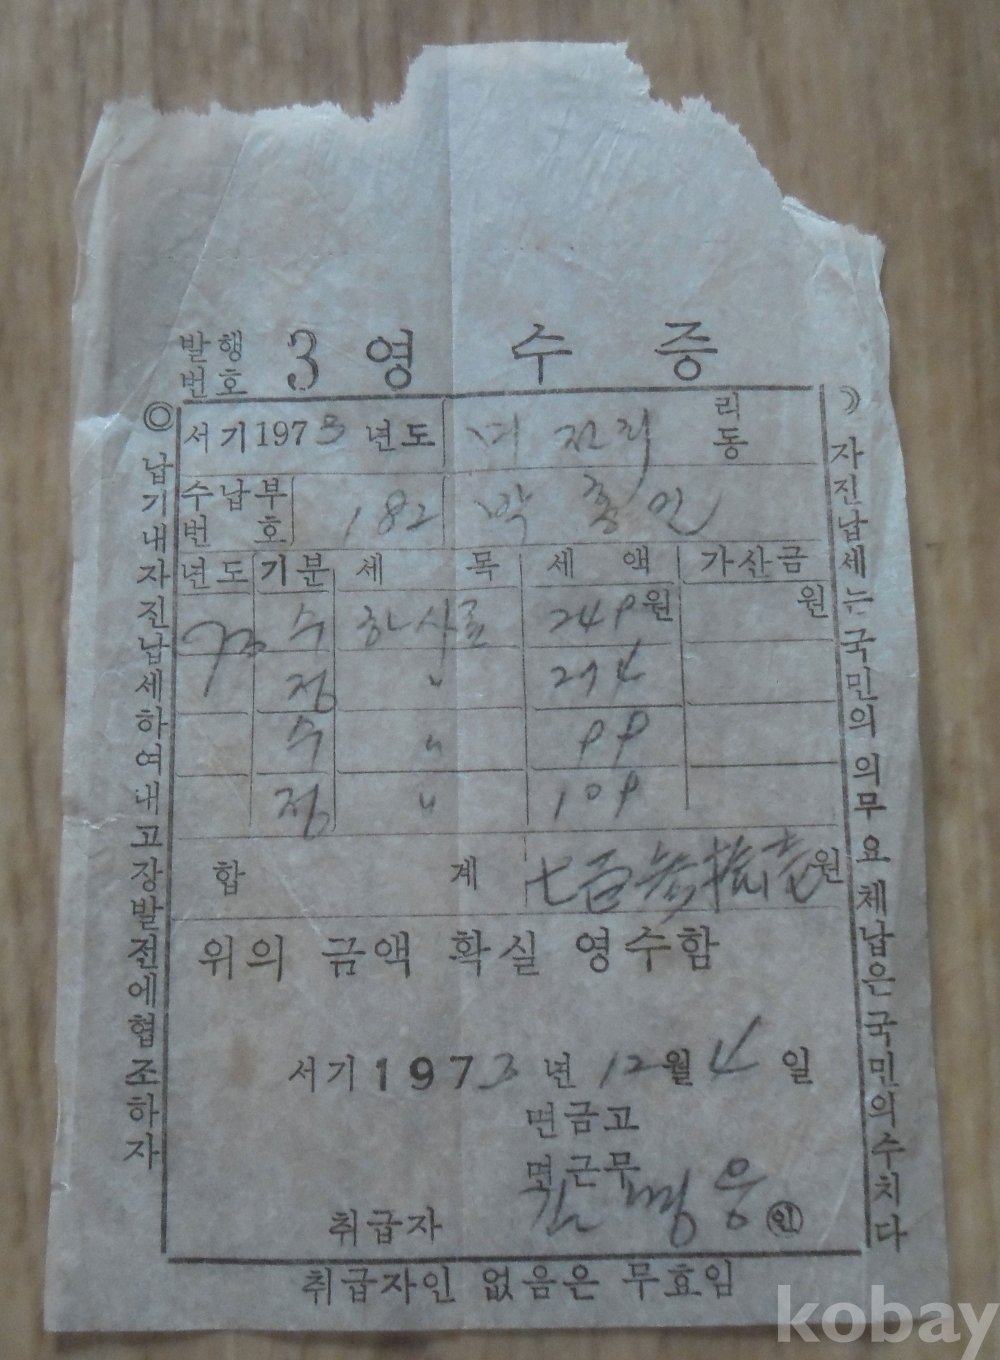 발행
번호 3 영 수 증
서기 1973 년도 리
동
수납부
번 호 182 박 종 인
년도 기분 세 목 세 액 가산금
73 수 하사료 249 원 원
정 〃 274
수 〃 99
정 〃 109
합 계 七百參拾壱 원
위의 금액 확실 영수함
서기 1973 년 12 월 4 일
면금고
면근무
취급자 김 명 웅 ㊞
취급자인 없음은 무효임
◎ 납기내자진납세하여내고장발전에협조하자
자진납세는국민의의무요체납은국민의수치다
kobay